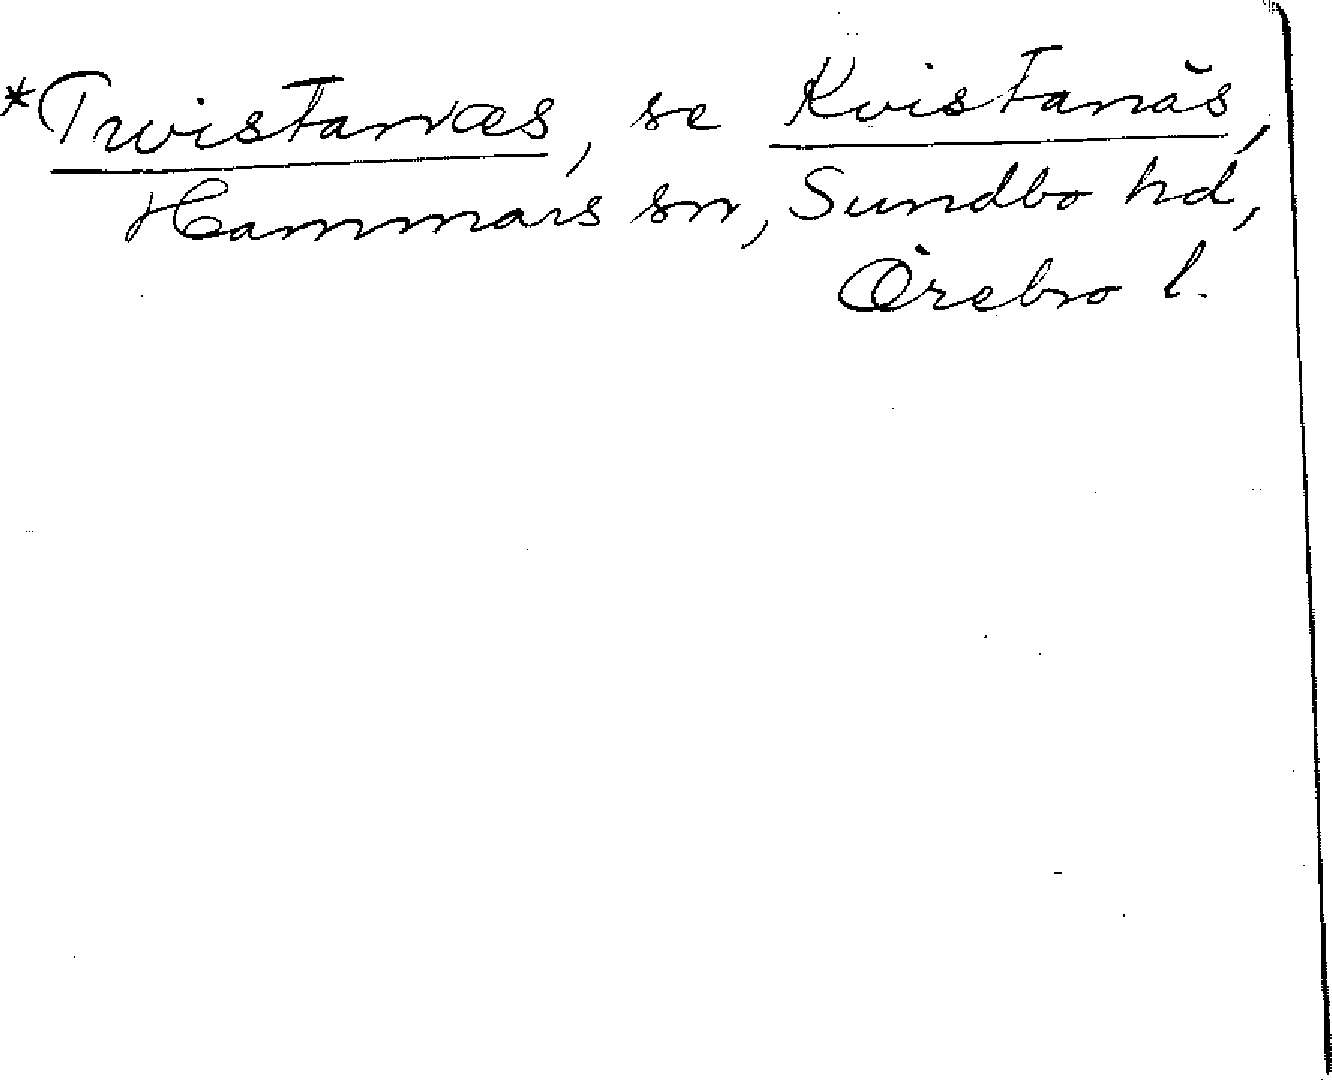 *Twistanæs, se Kvistanäs,
Hammars sn, Sundbo hd,
Örebro l.